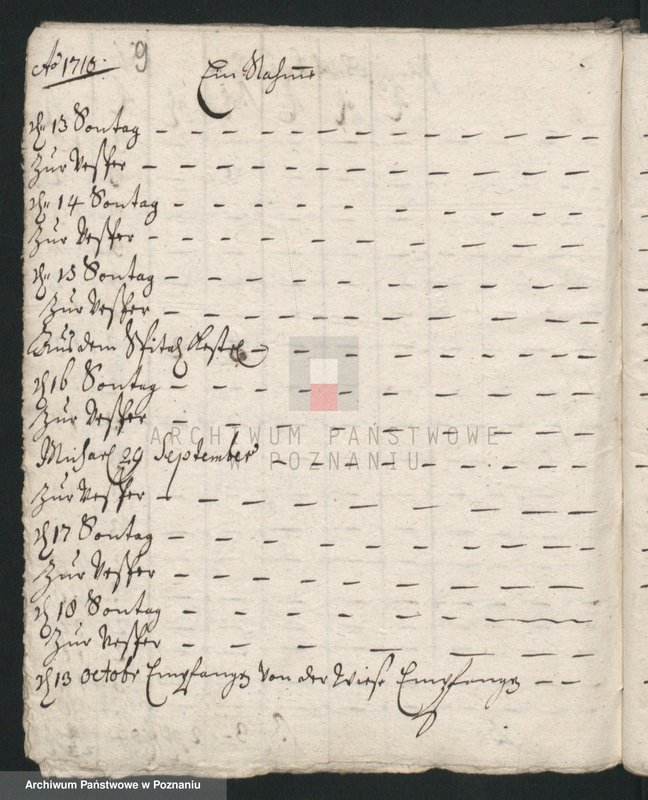 Aõ 1710. 9
Ein Nahme
dẽ 13 Sontag
Zur Vesper
dẽ 14 Sontag
Zur Vesper
dẽ 15 Sontag
Zur Vesper
Aus dem Spital
d 16 Sontag
Zur Vesper
Michael 29 September
Zur Vesper
d 17 Sontag
Zur Vesper
d 18 Sontag
Zur Vesper
d 13 octobr Empfangen Von der Wiese Empfangen
ARCHIWUM PAŃSTWOWE
W POZNANIU
Archiwum Państwowe w Poznaniu